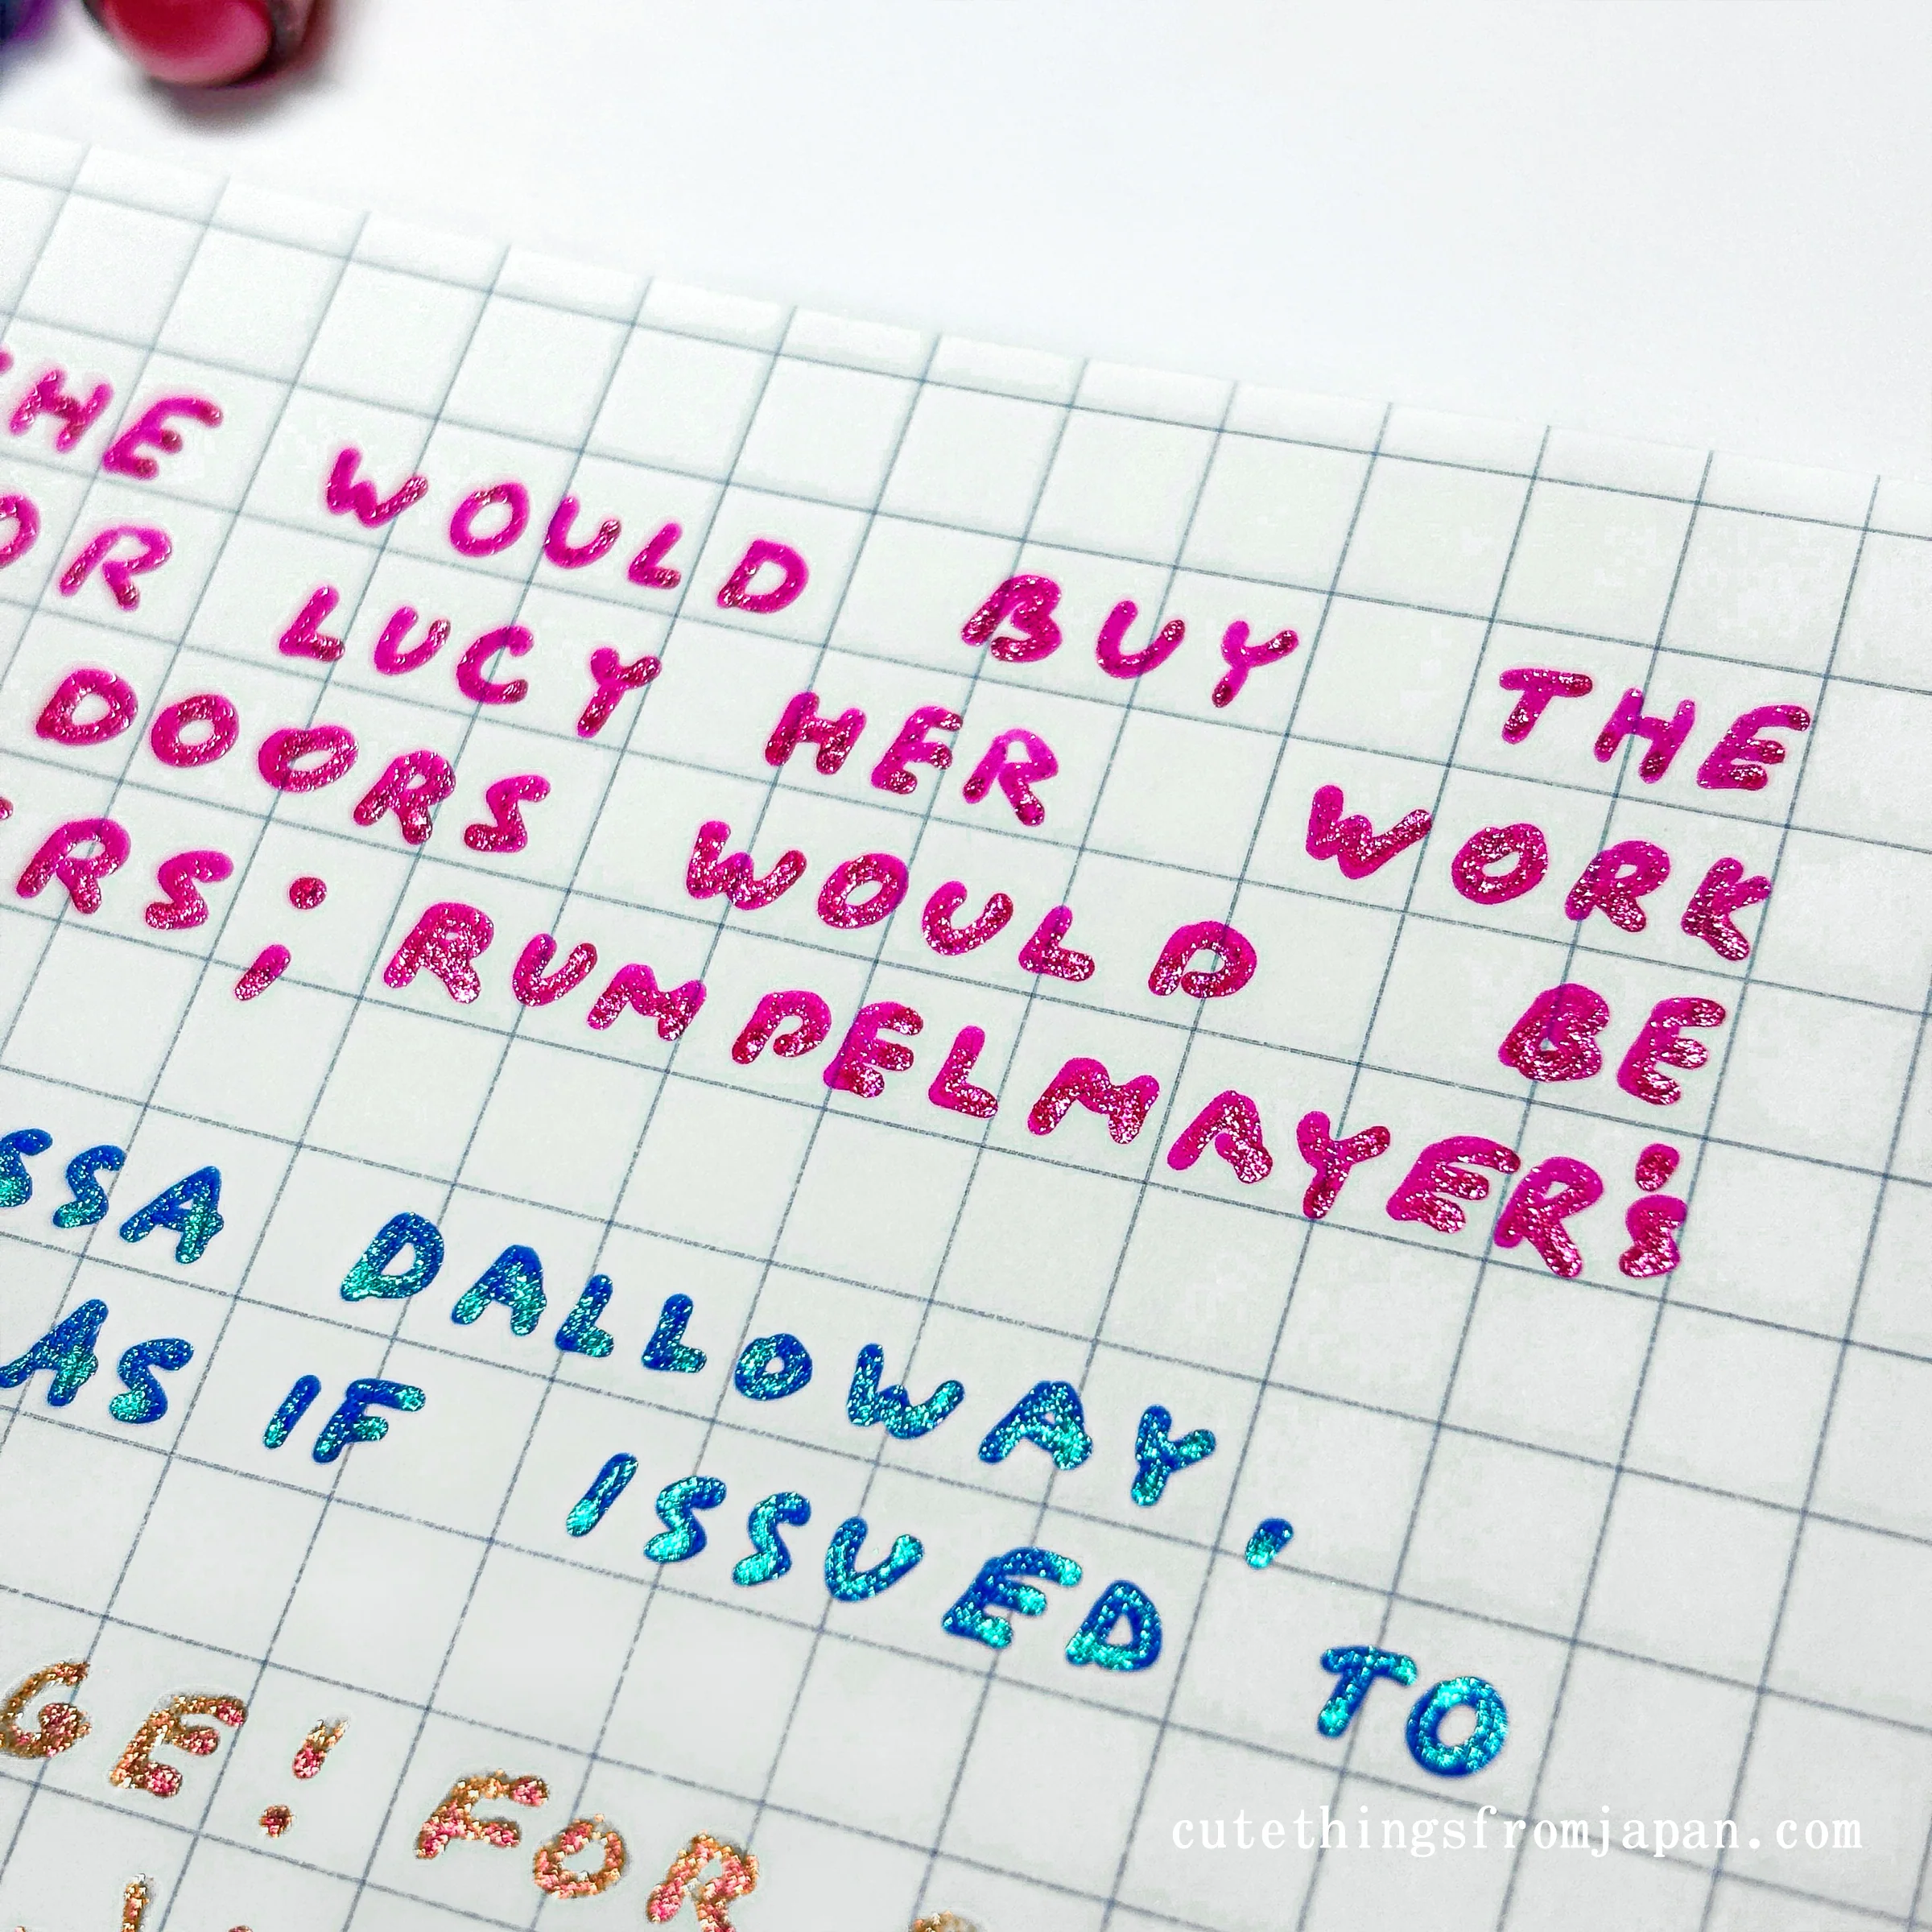 HE WOULD BUY THE
OR LUCY HER WORK
DOORS WOULD BE
ERS; RUMPELMAYER'S
SSA DALLOWAY,
AS IF ISSUED TO
GE! FOR
cutethingsfromjapan.com